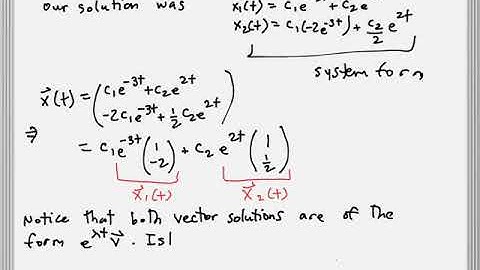 our solution was
x₁(t) = c₁e⁻³ᵗ + c₂e
x₂(t) = c₁(-2e⁻³ᵗ) + c₂/2 e²ᵗ
system form
x⃗(t) = (c₁e⁻³ᵗ + c₂e²ᵗ
-2c₁e⁻³ᵗ + ½c₂e²ᵗ)
⇒ = c₁e⁻³ᵗ (1 -2) + c₂ e²ᵗ (1 ½)
x⃗₁(t) x⃗₂(t)
Notice that both vector solutions are of the
form e^λt v⃗ . Is